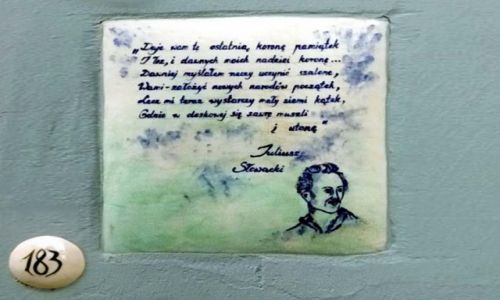 „Daję wam tę ostatnią, koronę pamiątek
I łez, i dawnych moich nadziei koronę...
Dawniej myślałem rzeczy uczynić szalone,
Wami założyć nowych narodów początek,
Lecz mi teraz wystarczy mały ziemi kątek,
Gdzie w deskowej się zawrę muszli
i utonę"
Juliusz
Słowacki
183